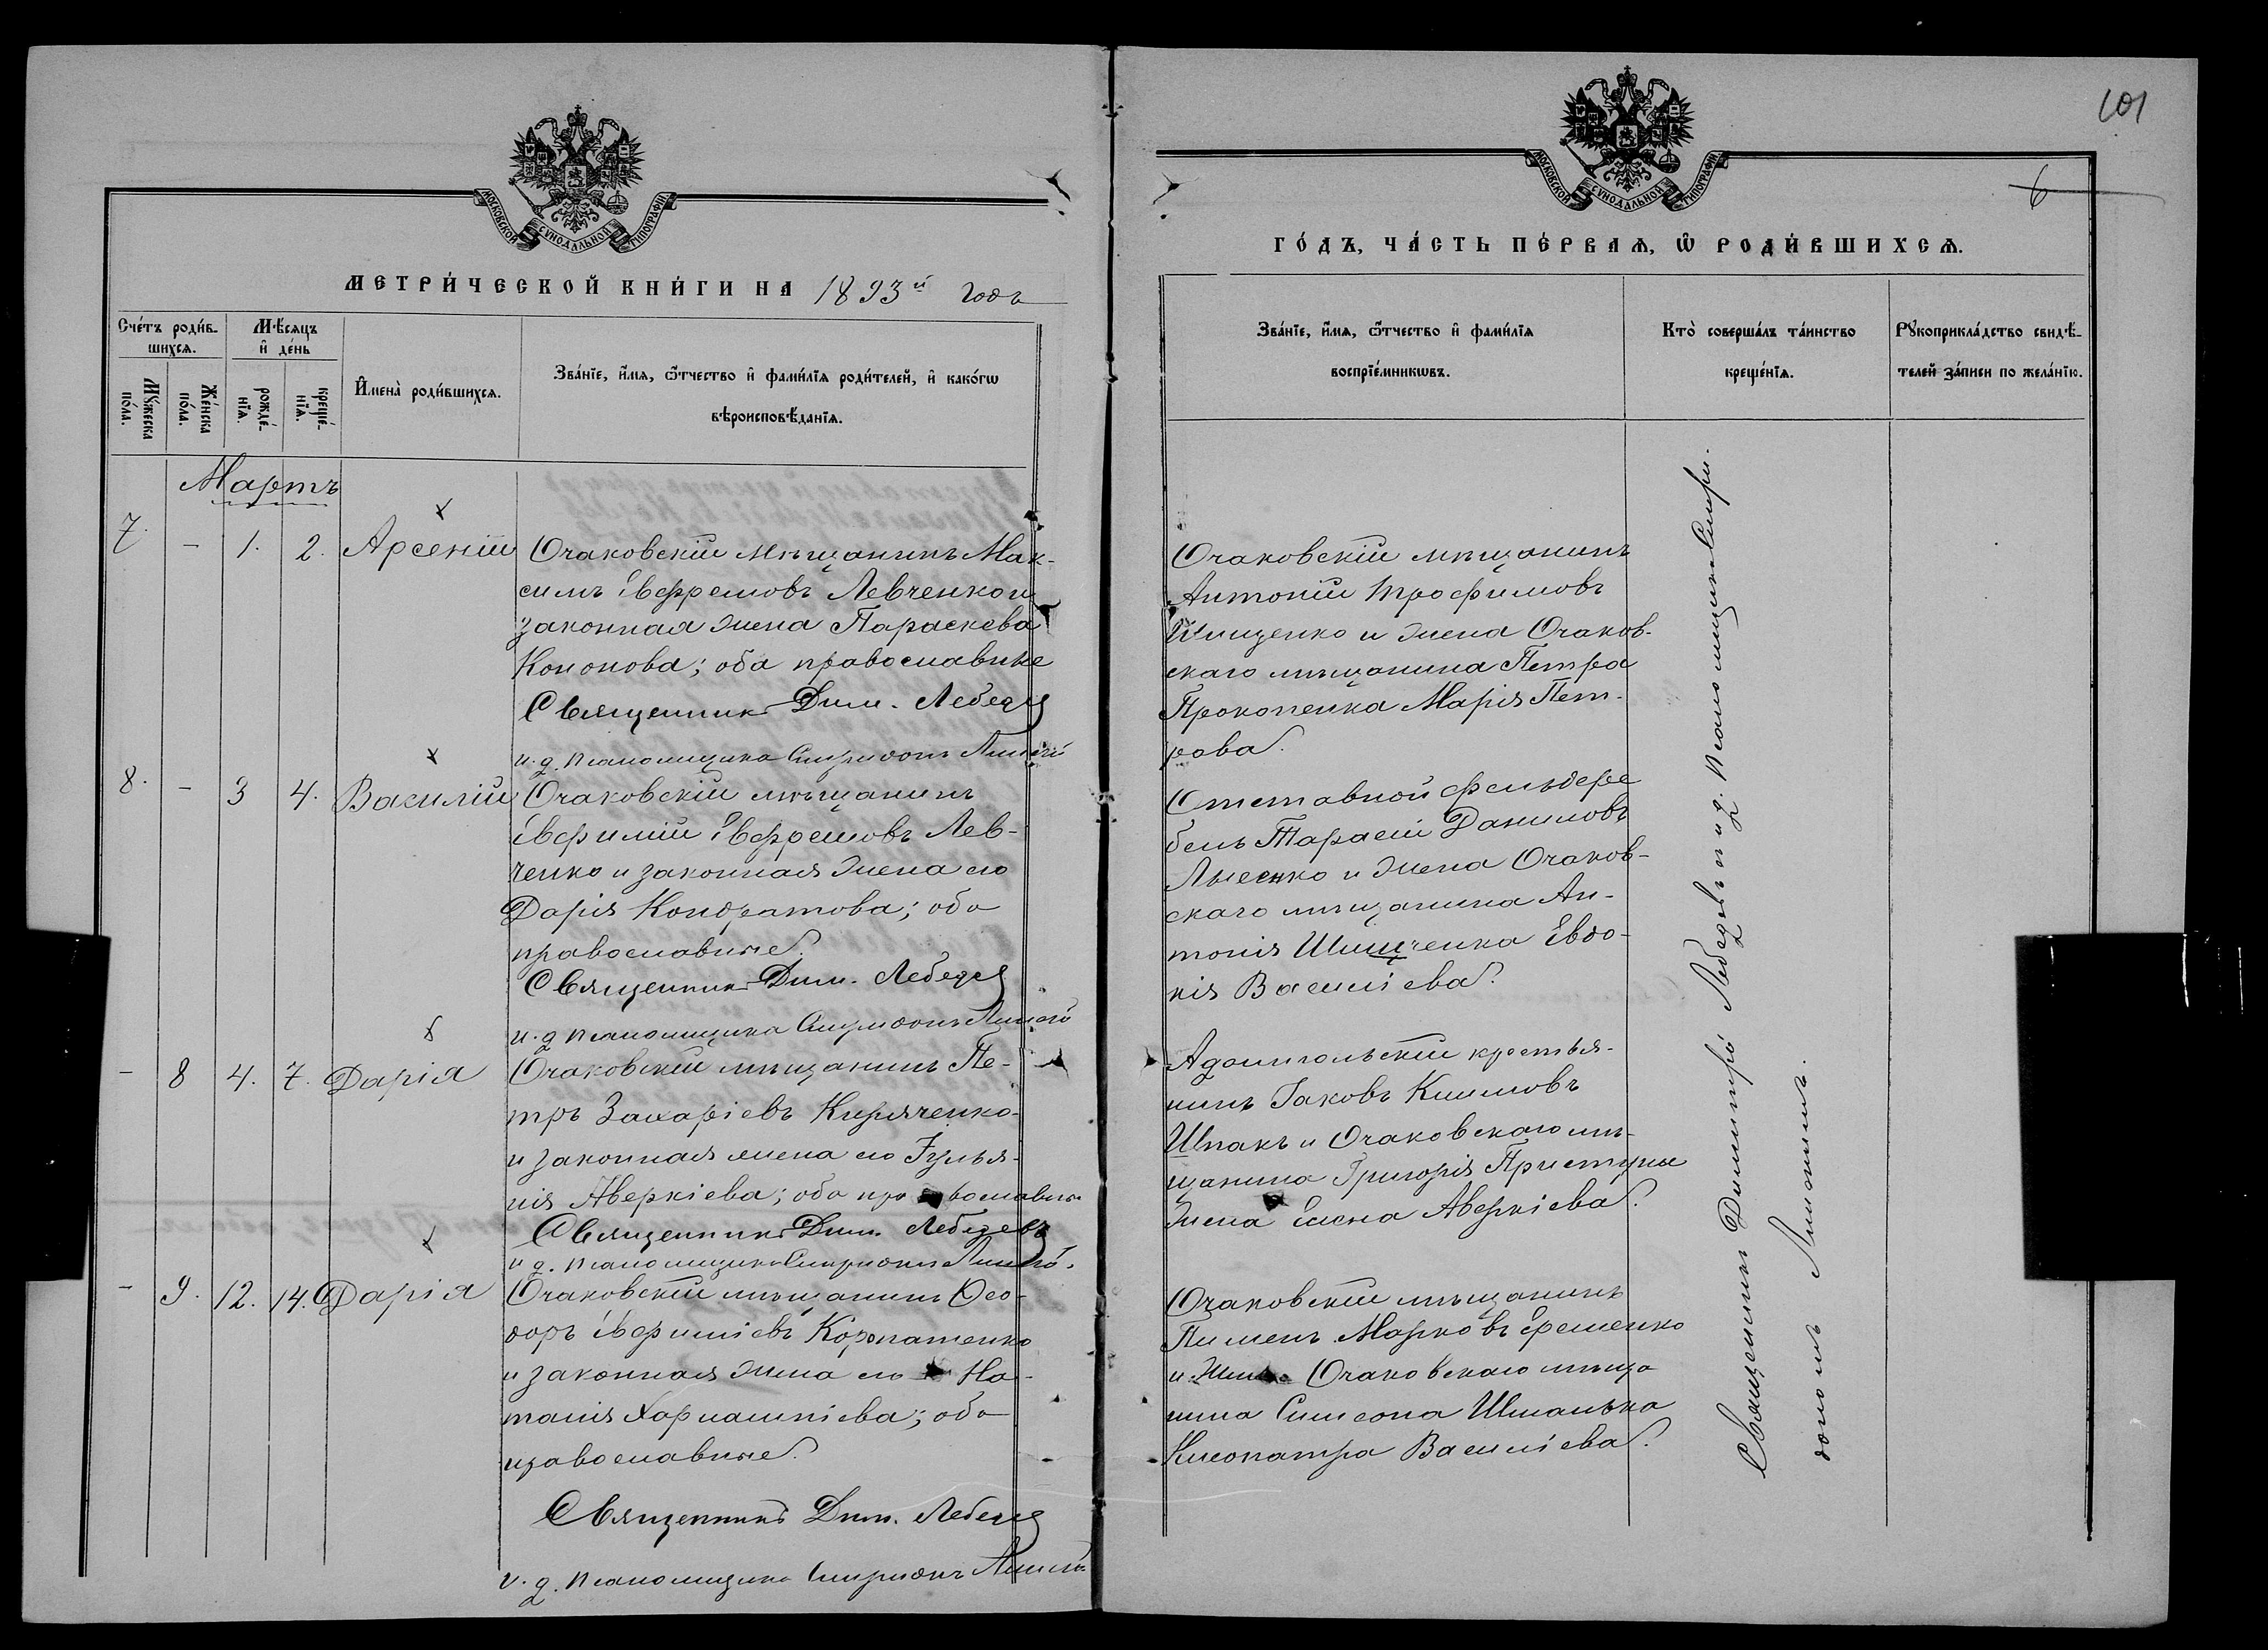 МОСКОВСКОЙ СѴНОДАЛЬНОЙ ТИПОГРАФІИ
МЕТРИ́ЧЕСКОЙ КНИ́ГИ НА 1893й годъ
Сче́тъ роди́в-
шихсѧ.
Мѣ́сяцъ
и҆ де́нь
Мꙋ́жеска
по́ла.
Же́нска
по́ла.
рожде́-
нїѧ.
креще́-
нїѧ.
И҆мена̀ роди́вшихсѧ.
Зва́нїе, и҆́мѧ, ѻ҆́тчество и҆ фами́лїѧ роди́телей, и҆ како́гѡ
вѣроисповѣ́данїѧ.
Мартъ
7. - 1. 2. Арсеній Очаковскій мѣщанинъ Мак-
симъ Евфремовъ Левченко и
законная жена Параскева
Кононова; оба православные
Священникъ Дим. Лебедевъ
и. д. псаломщика Спиридонъ
8. - 3 4. Василій Очаковскій мѣщанинъ
Евфимій Евфремовъ Лев-
ченко и законная жена его
Дарія Кондратова; оба
православные.
Священникъ Дим. Лебедевъ
и. д. псаломщика Спиридонъ
- 8 4. 7. Дарія Очаковскій мѣщанинъ Пе-
тръ Захаріевъ Кириченко
и законная жена его Іулья-
нія Аверкіева; оба православные
Священникъ Дим. Лебедевъ
и. д. псаломщика Спиридонъ
- 9. 12. 14. Дарія Очаковскій мѣщанинъ Ѳео-
доръ Евфиміевъ Корпатенко
и законная жена его На-
талія Харлампіева; оба
православные.
Священникъ Дим. Лебедевъ
и. д. псаломщика Спиридонъ
101
6
МОСКОВСКОЙ СѴНОДАЛЬНОЙ ТИПОГРАФІИ
ГО́ДЪ, ЧА́СТЬ ПЕ́РВАѦ, Ѡ҆ РОДИ́ВШИХСѦ.
Зва́нїе, и҆́мѧ, ѻ҆́тчество и҆ фами́лїѧ
воспрїе́мникѡвъ.
Кто̀ соверша́лъ та́инство
креще́нїѧ.
Рꙋкоприкла́дство свидѣ́-
телей за́писи по жела́нїю.
Очаковскій мѣщанинъ
Антоній Трофимовъ
Шищенко и жена Очаков-
скаго мѣщанина Петра
Прокопенка Марія Пет-
рова.
Отставной фельдфе
бель Тарасій Даниловъ
Лысенко и жена Очаков-
скаго мѣщанина Ан-
тонія Шищенка Евдо-
кія Василіева.
крестья-
нинъ Іаковъ Климовъ
Шпакъ и Очаковскаго мѣ-
щанина Григорія Приступы
жена Елена Аверкіева.
Очаковскій мѣщанинъ
Пименъ Марковъ Еременко
и жена Очаковскаго мѣща
нина Симеона Шмалько
Клеопатра Василіева.
Священникъ Димитрій Лебедевъ и и. д. псаломщика Спири-
дономъ